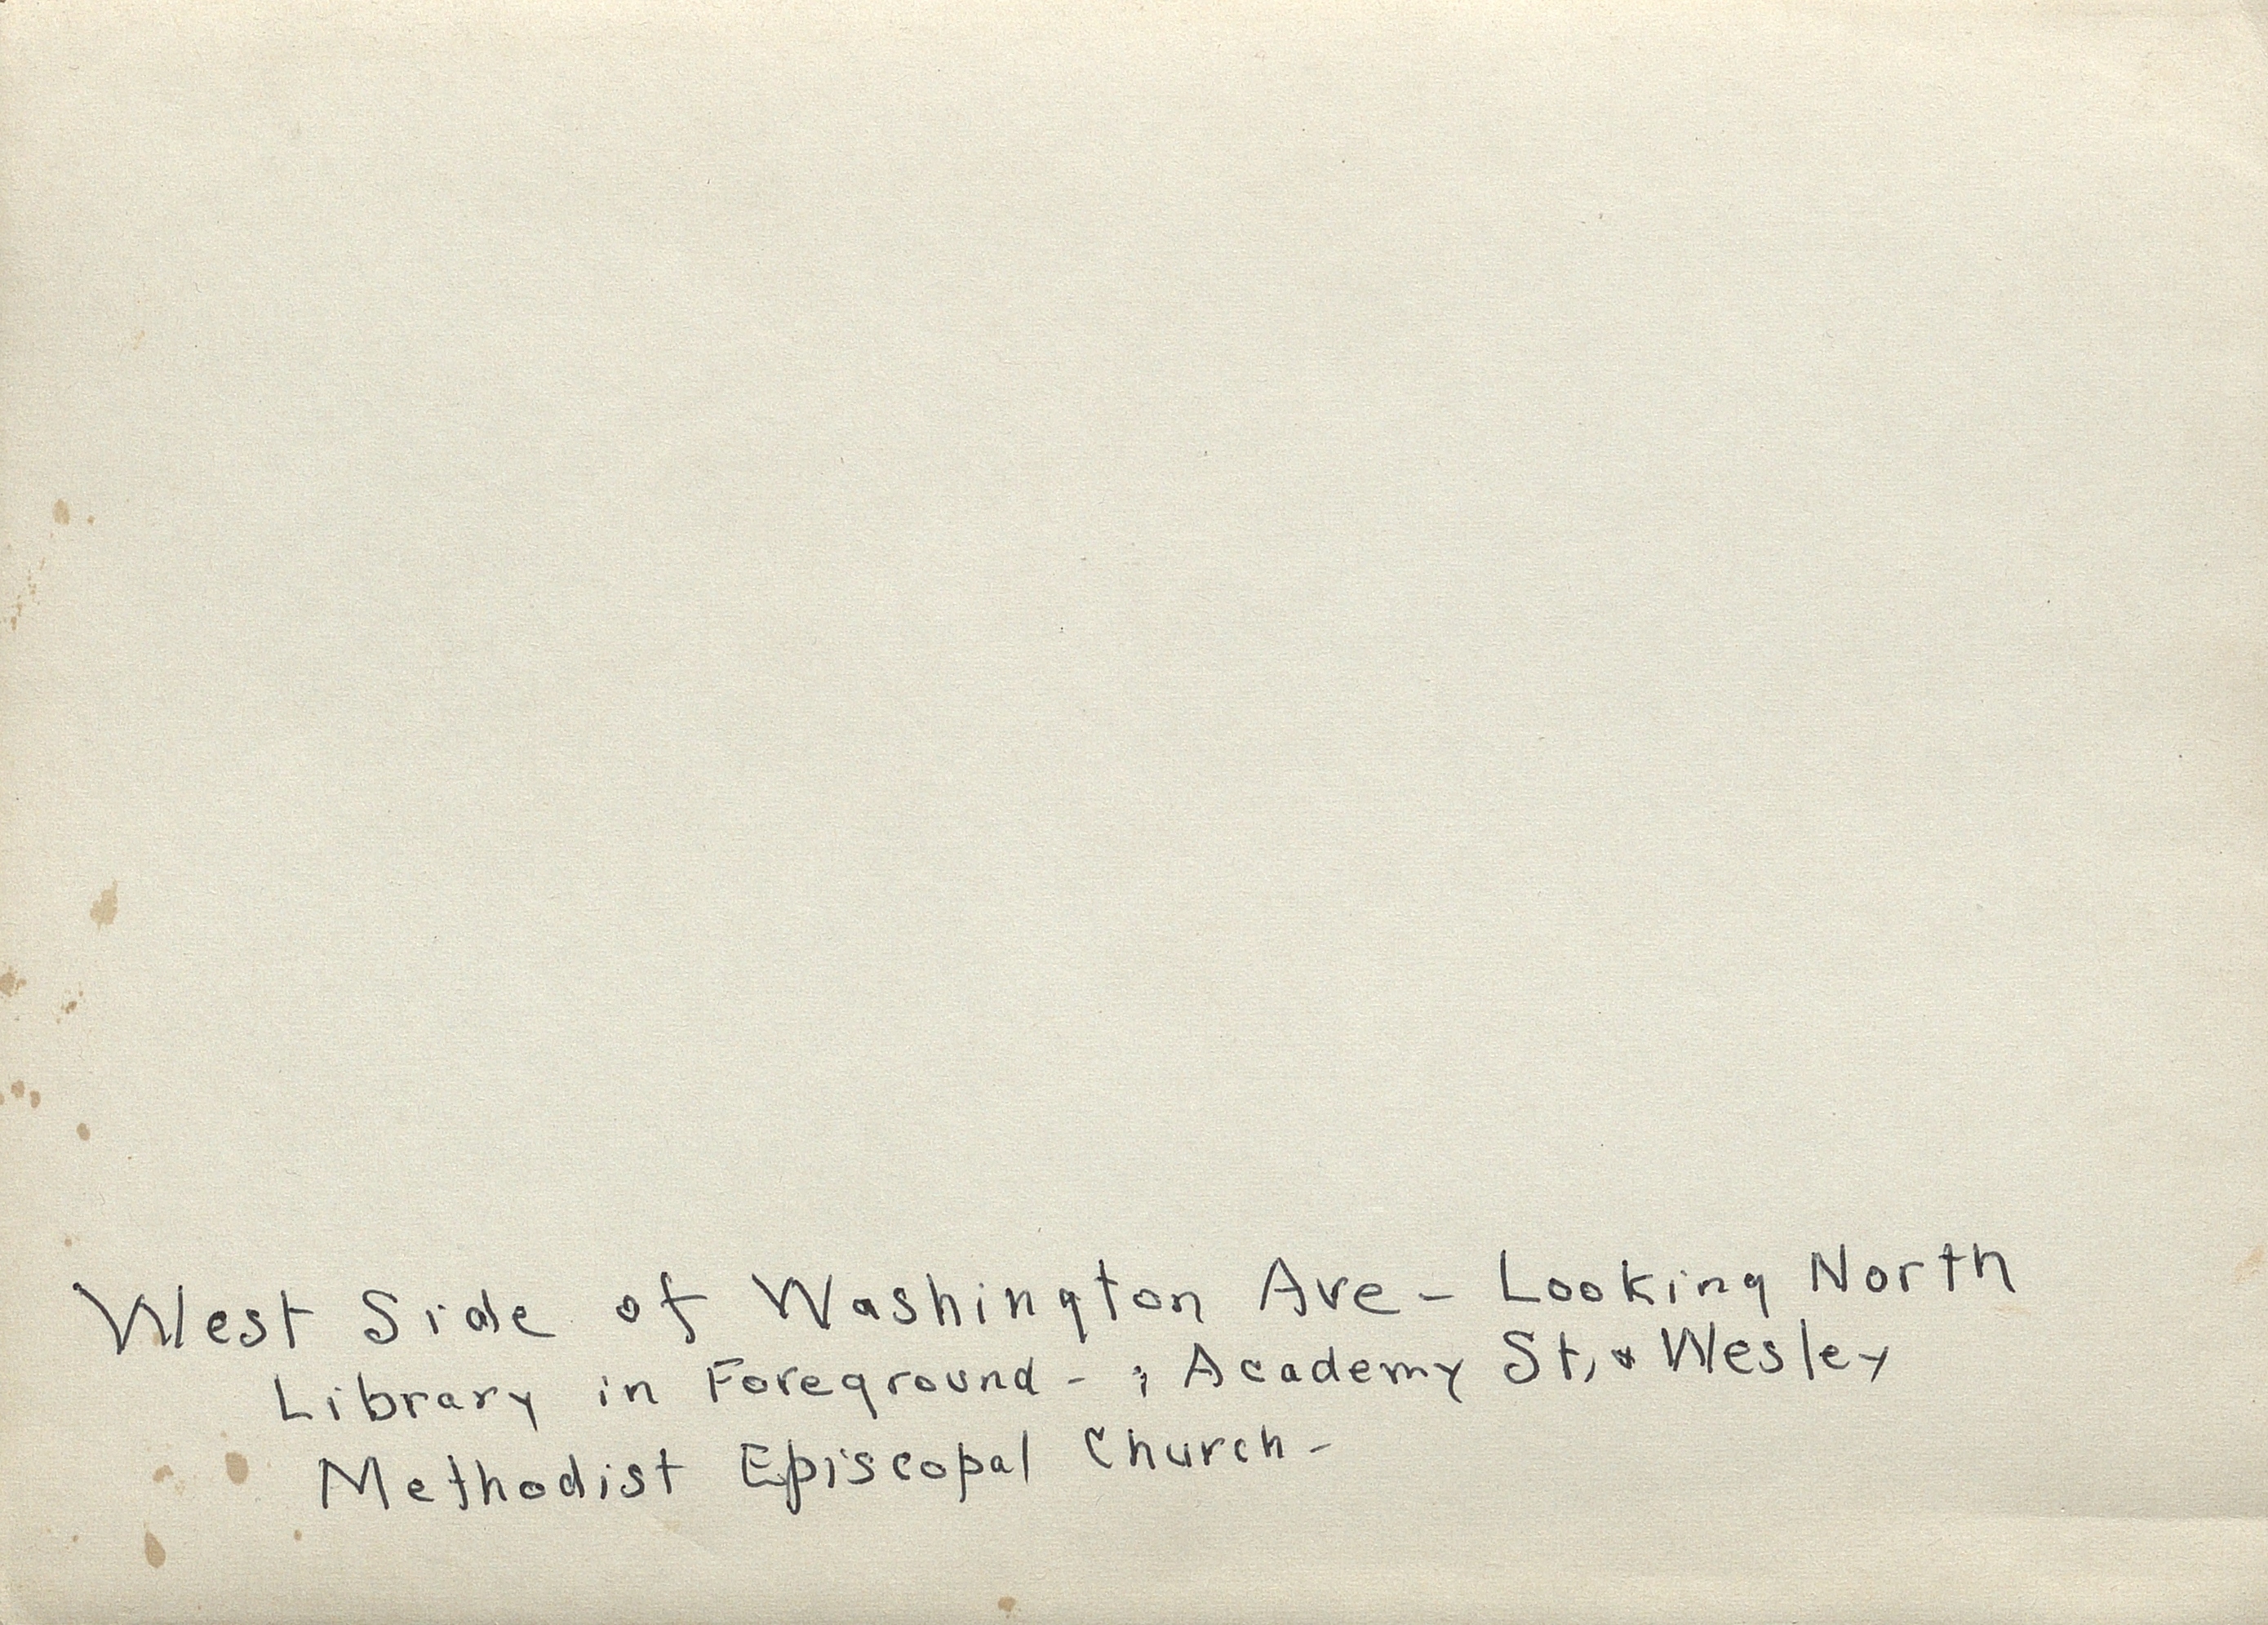 West Side of Washington Ave - Looking North
Library in Foreground - ; Academy St, & Wesley
Methodist Episcopal Church -